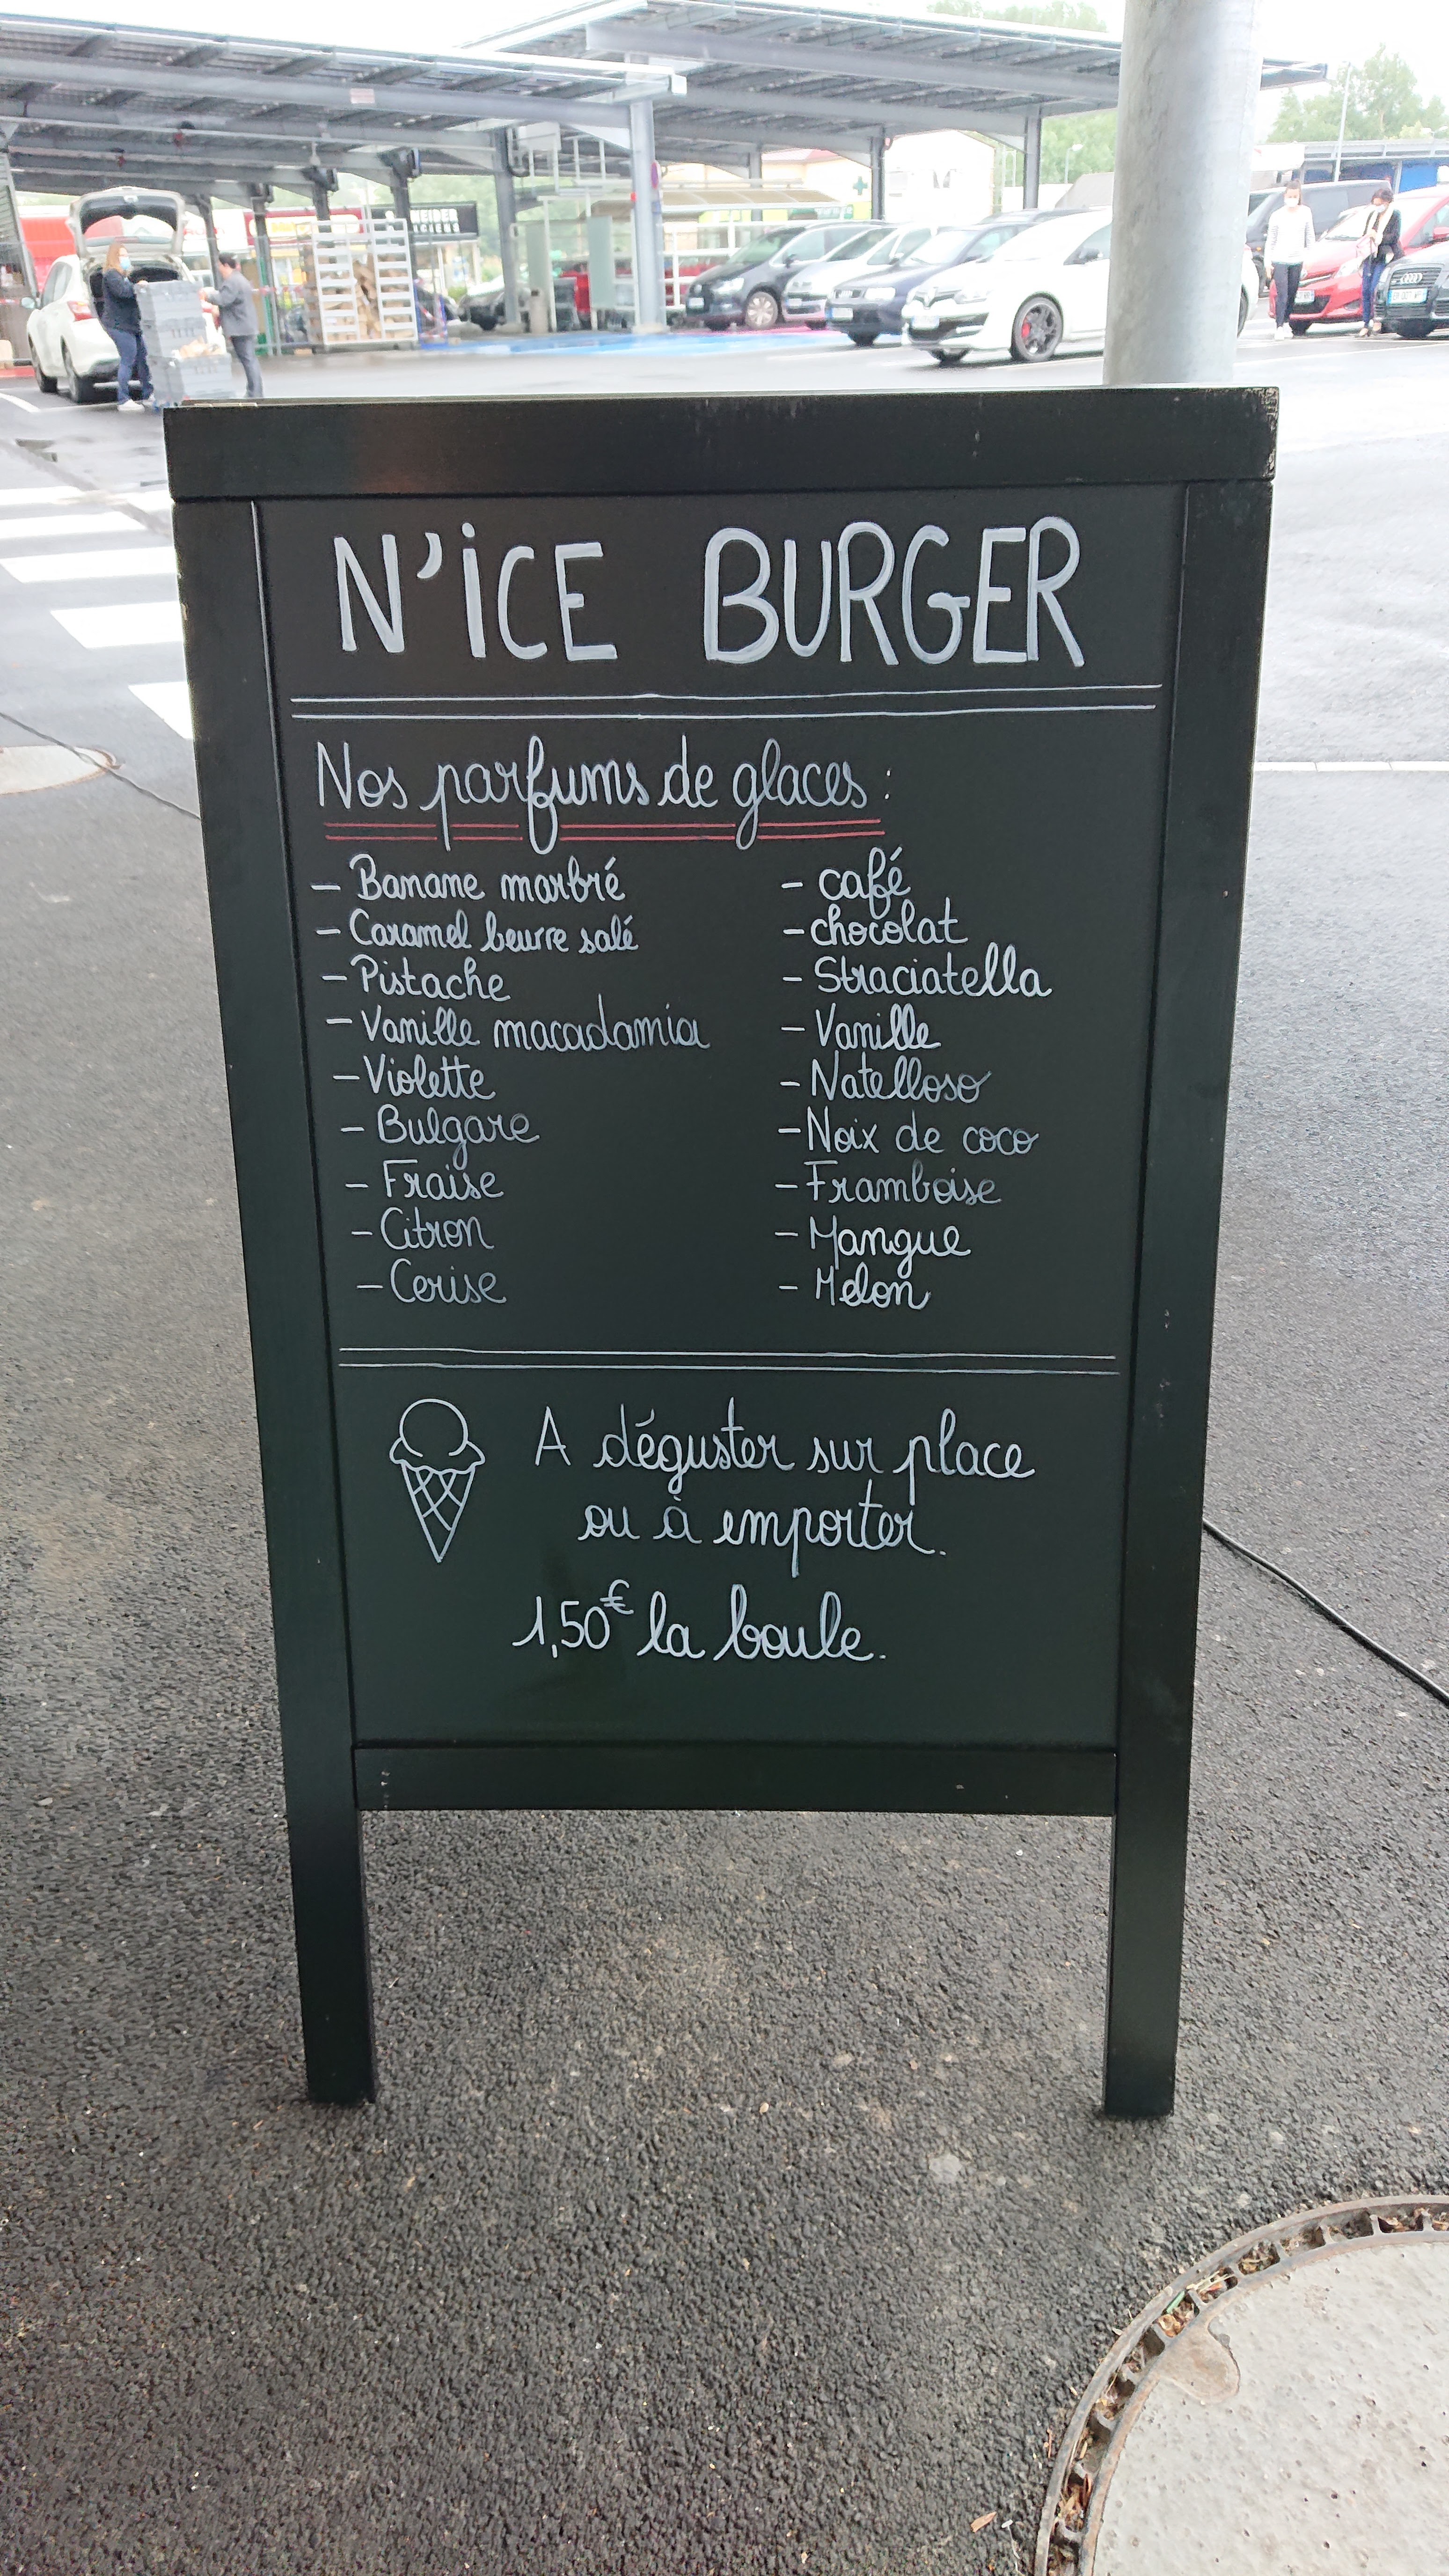 N'iCE BURGER
Nos parfums de glaces :
- Banane marbré
- Caramel beurre salé
- Pistache
- Vanille macadamia
- Violette
- Bulgare
- Fraise
- Citron
- Cerise
- café
- chocolat
- Straciatella
- Vanille
- Natelloso
- Noix de coco
- Framboise
- Mangue
- Melon
A déguster sur place
ou à emporter.
1,50€ la boule.